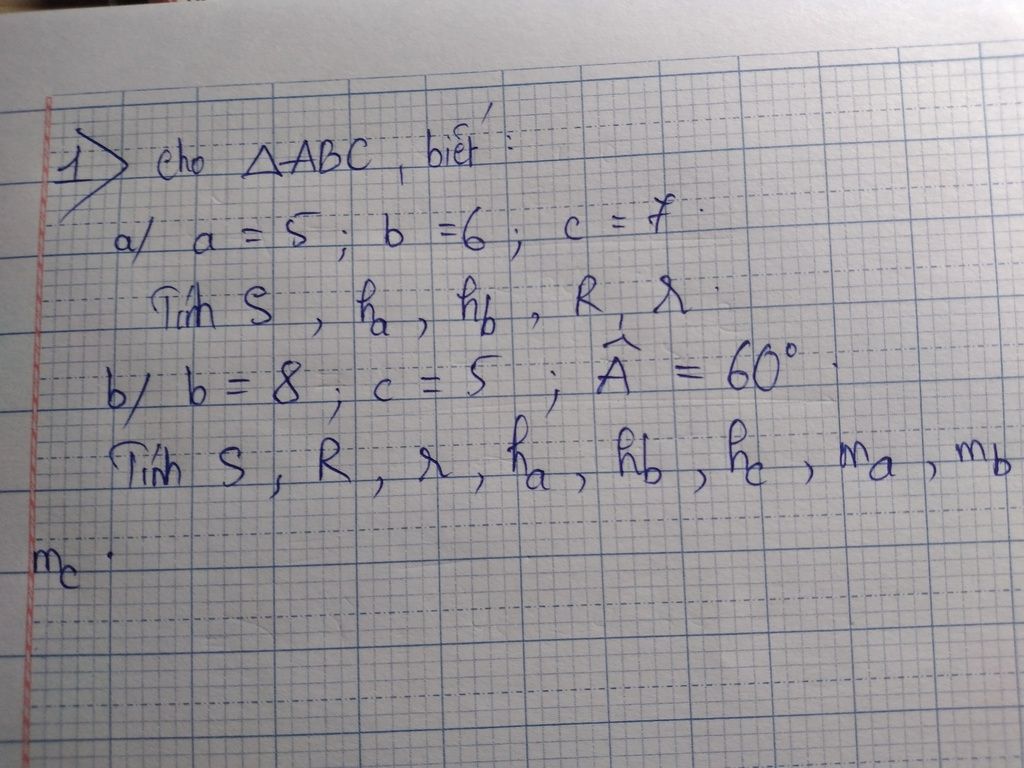 1> Cho ΔABC, biết:
a/ a = 5 ; b = 6 ; c = 7.
Tính S, hₐ, h_b, R, r.
b/ b = 8 ; c = 5 ; Â = 60°.
Tính S, R, r, hₐ, h_b, h_c, mₐ, m_b
m_c.